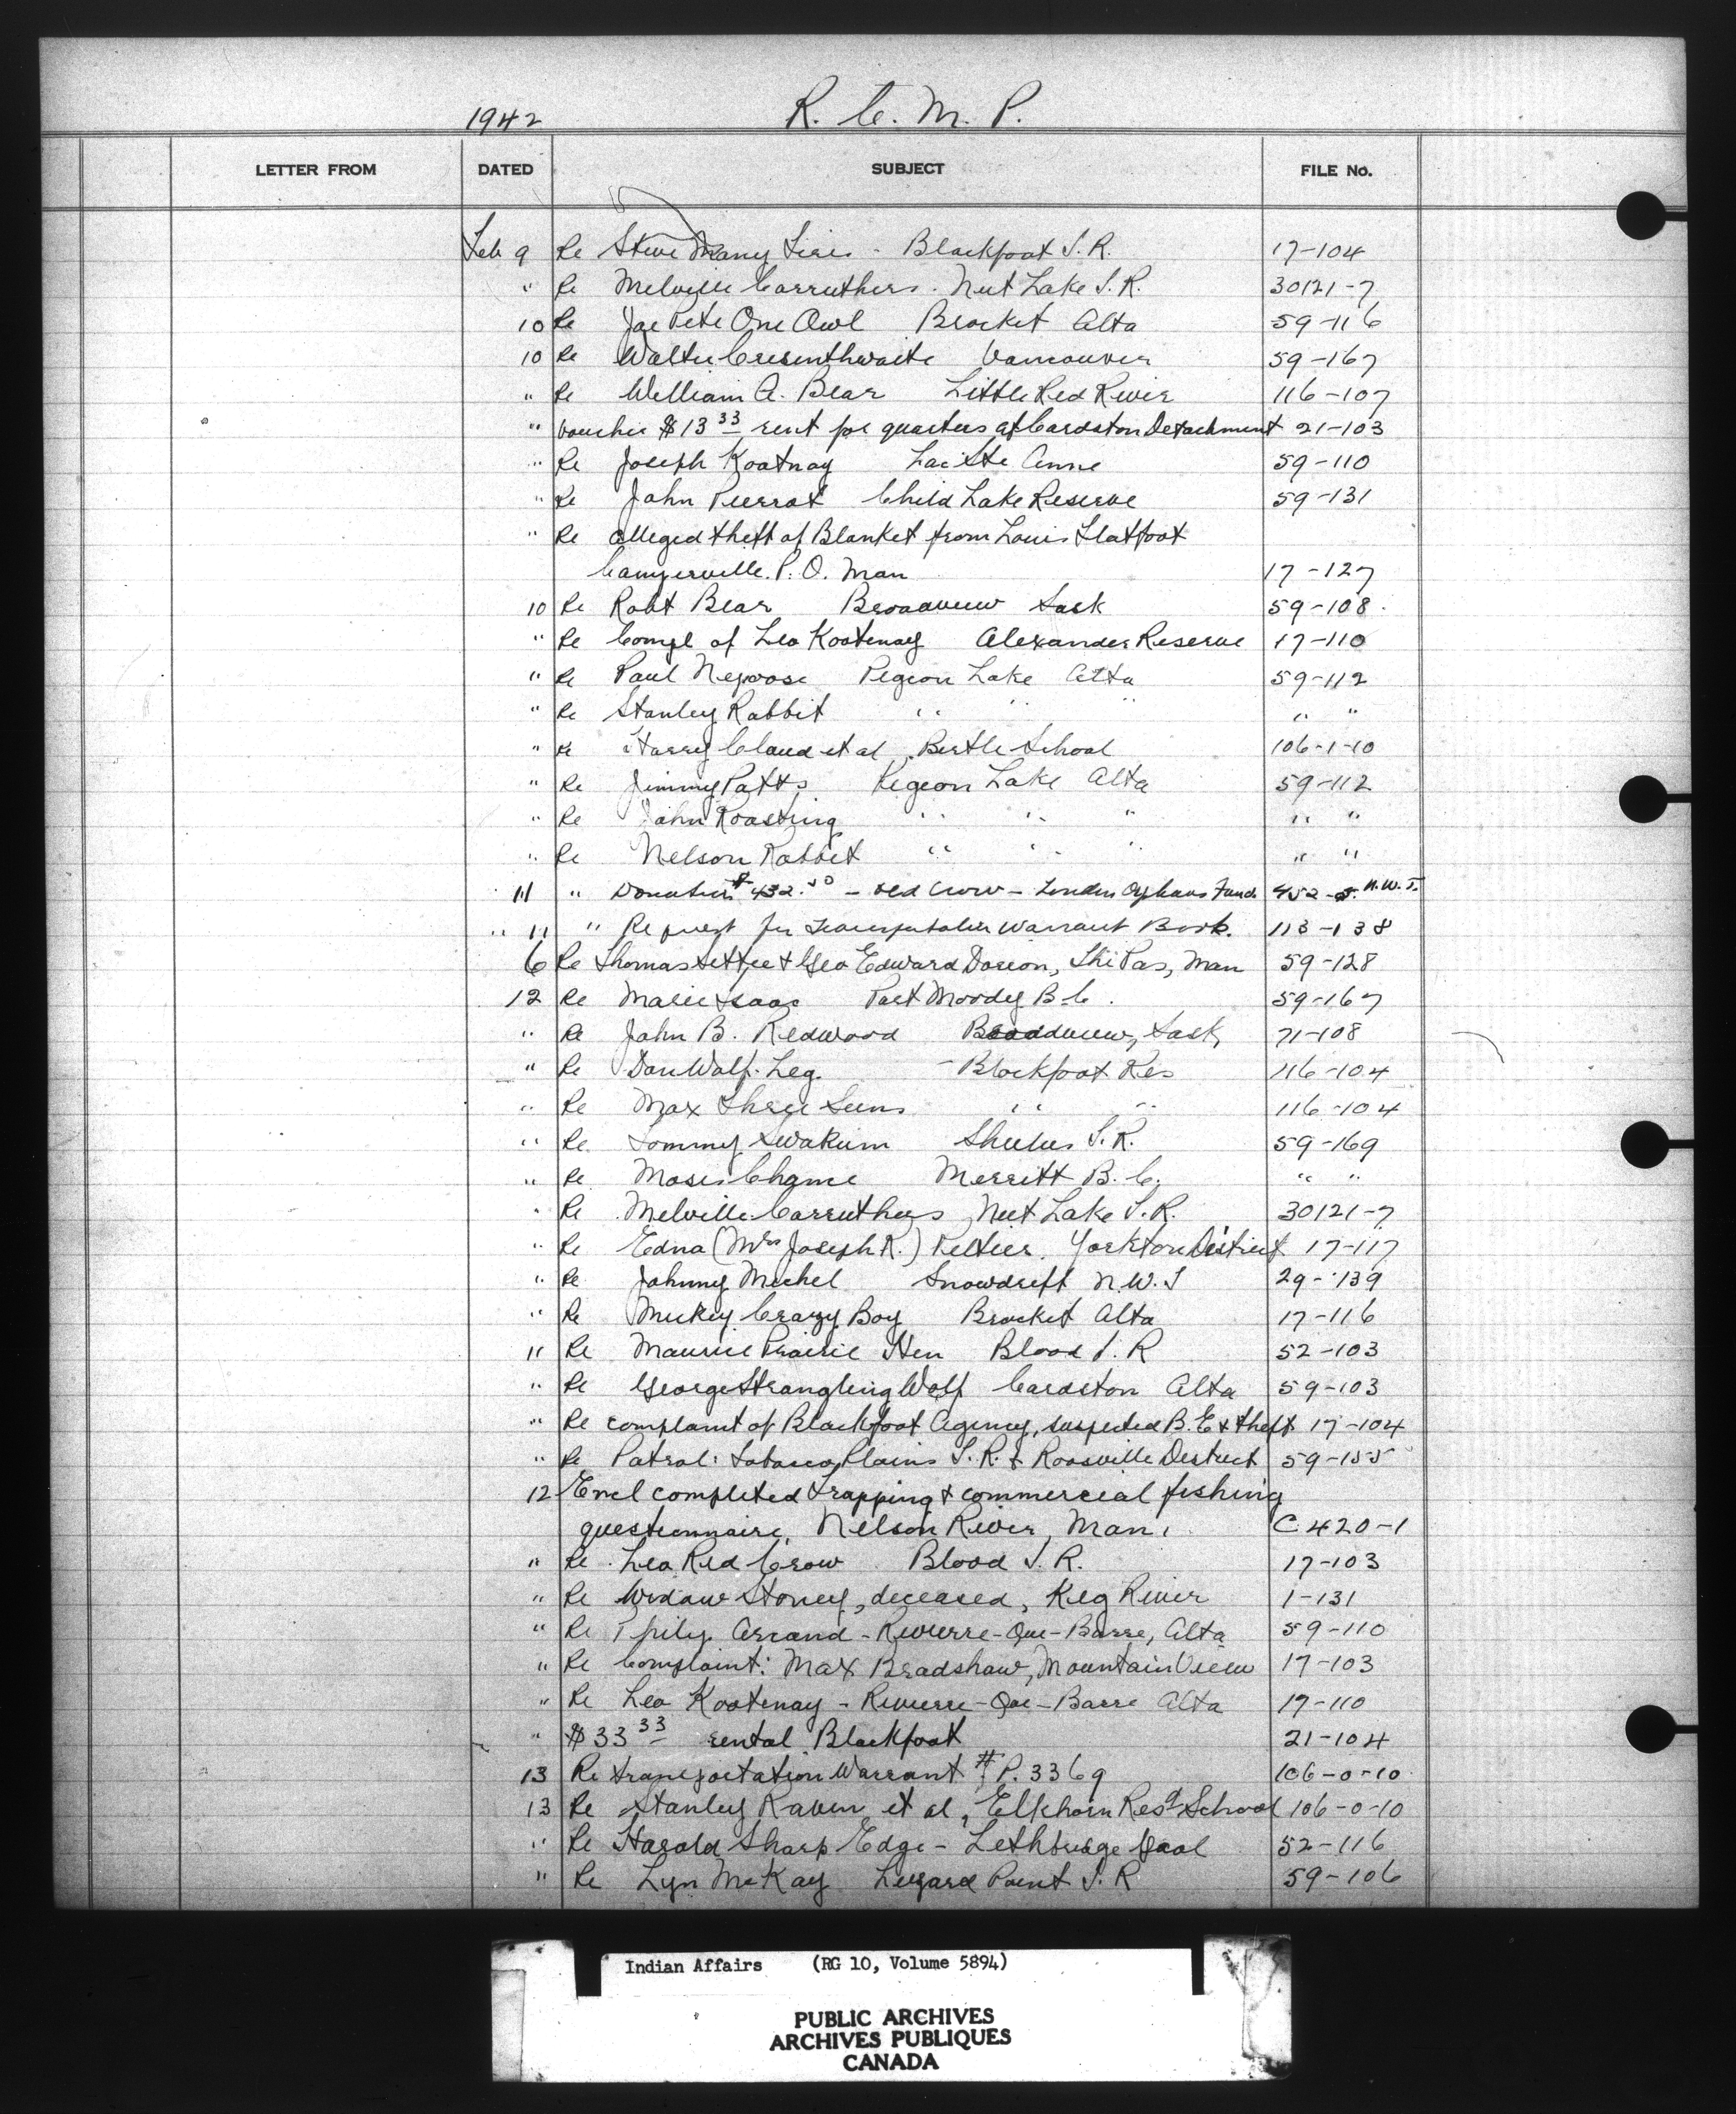 1942 R. C. M. P.
LETTER FROM DATED SUBJECT FILE No.
Feb 9 Re Steve Many Fires - Blackfoot I. R. 17-104
" Re Melville Carruthers. Nut Lake I. R. 30121-7
10 Re Joe Pete One Owl Brocket Alta 59-116
10 Re Walter Cresenthwaite Vancouver 59-167
" Re William A. Bear Little Red River 116-107
" Voucher $13 33 rent for quarters at Cardston Detachment 21-103
" Re Joseph Kootnay Lac Ste Anne 59-110
" Re John Pierrot Child Lake Reserve 59-131
" Re alleged theft of Blanket from Louis Flatfoot
Camperville P. O. Man 17-127
10 Re Robt Bear Broadview Sask 59-108
" Re Compl of Leo Kootenay Alexander Reserve 17-110
" Re Paul Nepoose Pigeon Lake Alta 59-112
" Re Stanley Rabbit " " " " "
" Re Harry Cloud et al Birtle School 106-1-10
" Re Jimmy Potts Pigeon Lake Alta 59-112
" Re John Roasting " " " " "
" Re Nelson Rabbit " " " " "
11 " Donation $432.50 - Old Crow - London Orphans Fund 452-5. N.W.T.
" 11 " Request for Transportation Warrant Book. 113-138
6 Re Thomas Settee & Geo Edward Dorion, The Pas, Man 59-128
12 Re Marie Isaac Port Moody B.C. 59-167
" Re John B. Redwood Broadview, Sask, 71-108
" Re Dan Wolf Leg. - Blackfoot Res 116-104
" Re Max Three Suns " " 116-104
" Re Tommy Swakum Shulus I. R. 59-169
" Re Moses Merritt B. C. " "
" Re Melville Carruthers Nut Lake I. R. 30121-7
" Re Edna (Mrs Joseph R.) Peltier. Yorkton District 17-117
" Re Johnny Michel Snowdrift N.W.T 29-139
" Re Mickey Crazy Boy Brocket Alta 17-116
" Re Maurice Prairie Hen Blood I. R 52-103
" Re George Strangling Wolf Cardston Alta 59-103
" Re complaint of Blackfoot Agency, suspected B. E & theft 17-104
" Re Patrol: Tobacco Plains I. R. & Roosville District 59-155
12 Encl completed trapping & commercial fishing
questionnaire, Nelson River, Man. C 420-1
" Re Leo Red Crow Blood I. R. 17-103
" Re Widow Stoney, deceased, Keg River 1-131
" Re Arcand - Rivierre-Que-Barre, Alta 59-110
" Re Complaint: Max Bradshaw, Mountain View 17-103
" Re Leo Kootenay - Rivierre-Que-Barre Alta 17-110
" $33 33 rental Blackfoot 21-104
13 Re transportation Warrant # P. 3369 106-0-10
13 Re Stanley Raven et al, Elkhorn Resd School 106-0-10
" Re Harold Sharp Edge - Lethbridge Gaol 52-116
" Re Lyn McKay Lizard Point I. R 59-106
Indian Affairs (RG 10, Volume 5894)
PUBLIC ARCHIVES
ARCHIVES PUBLIQUES
CANADA